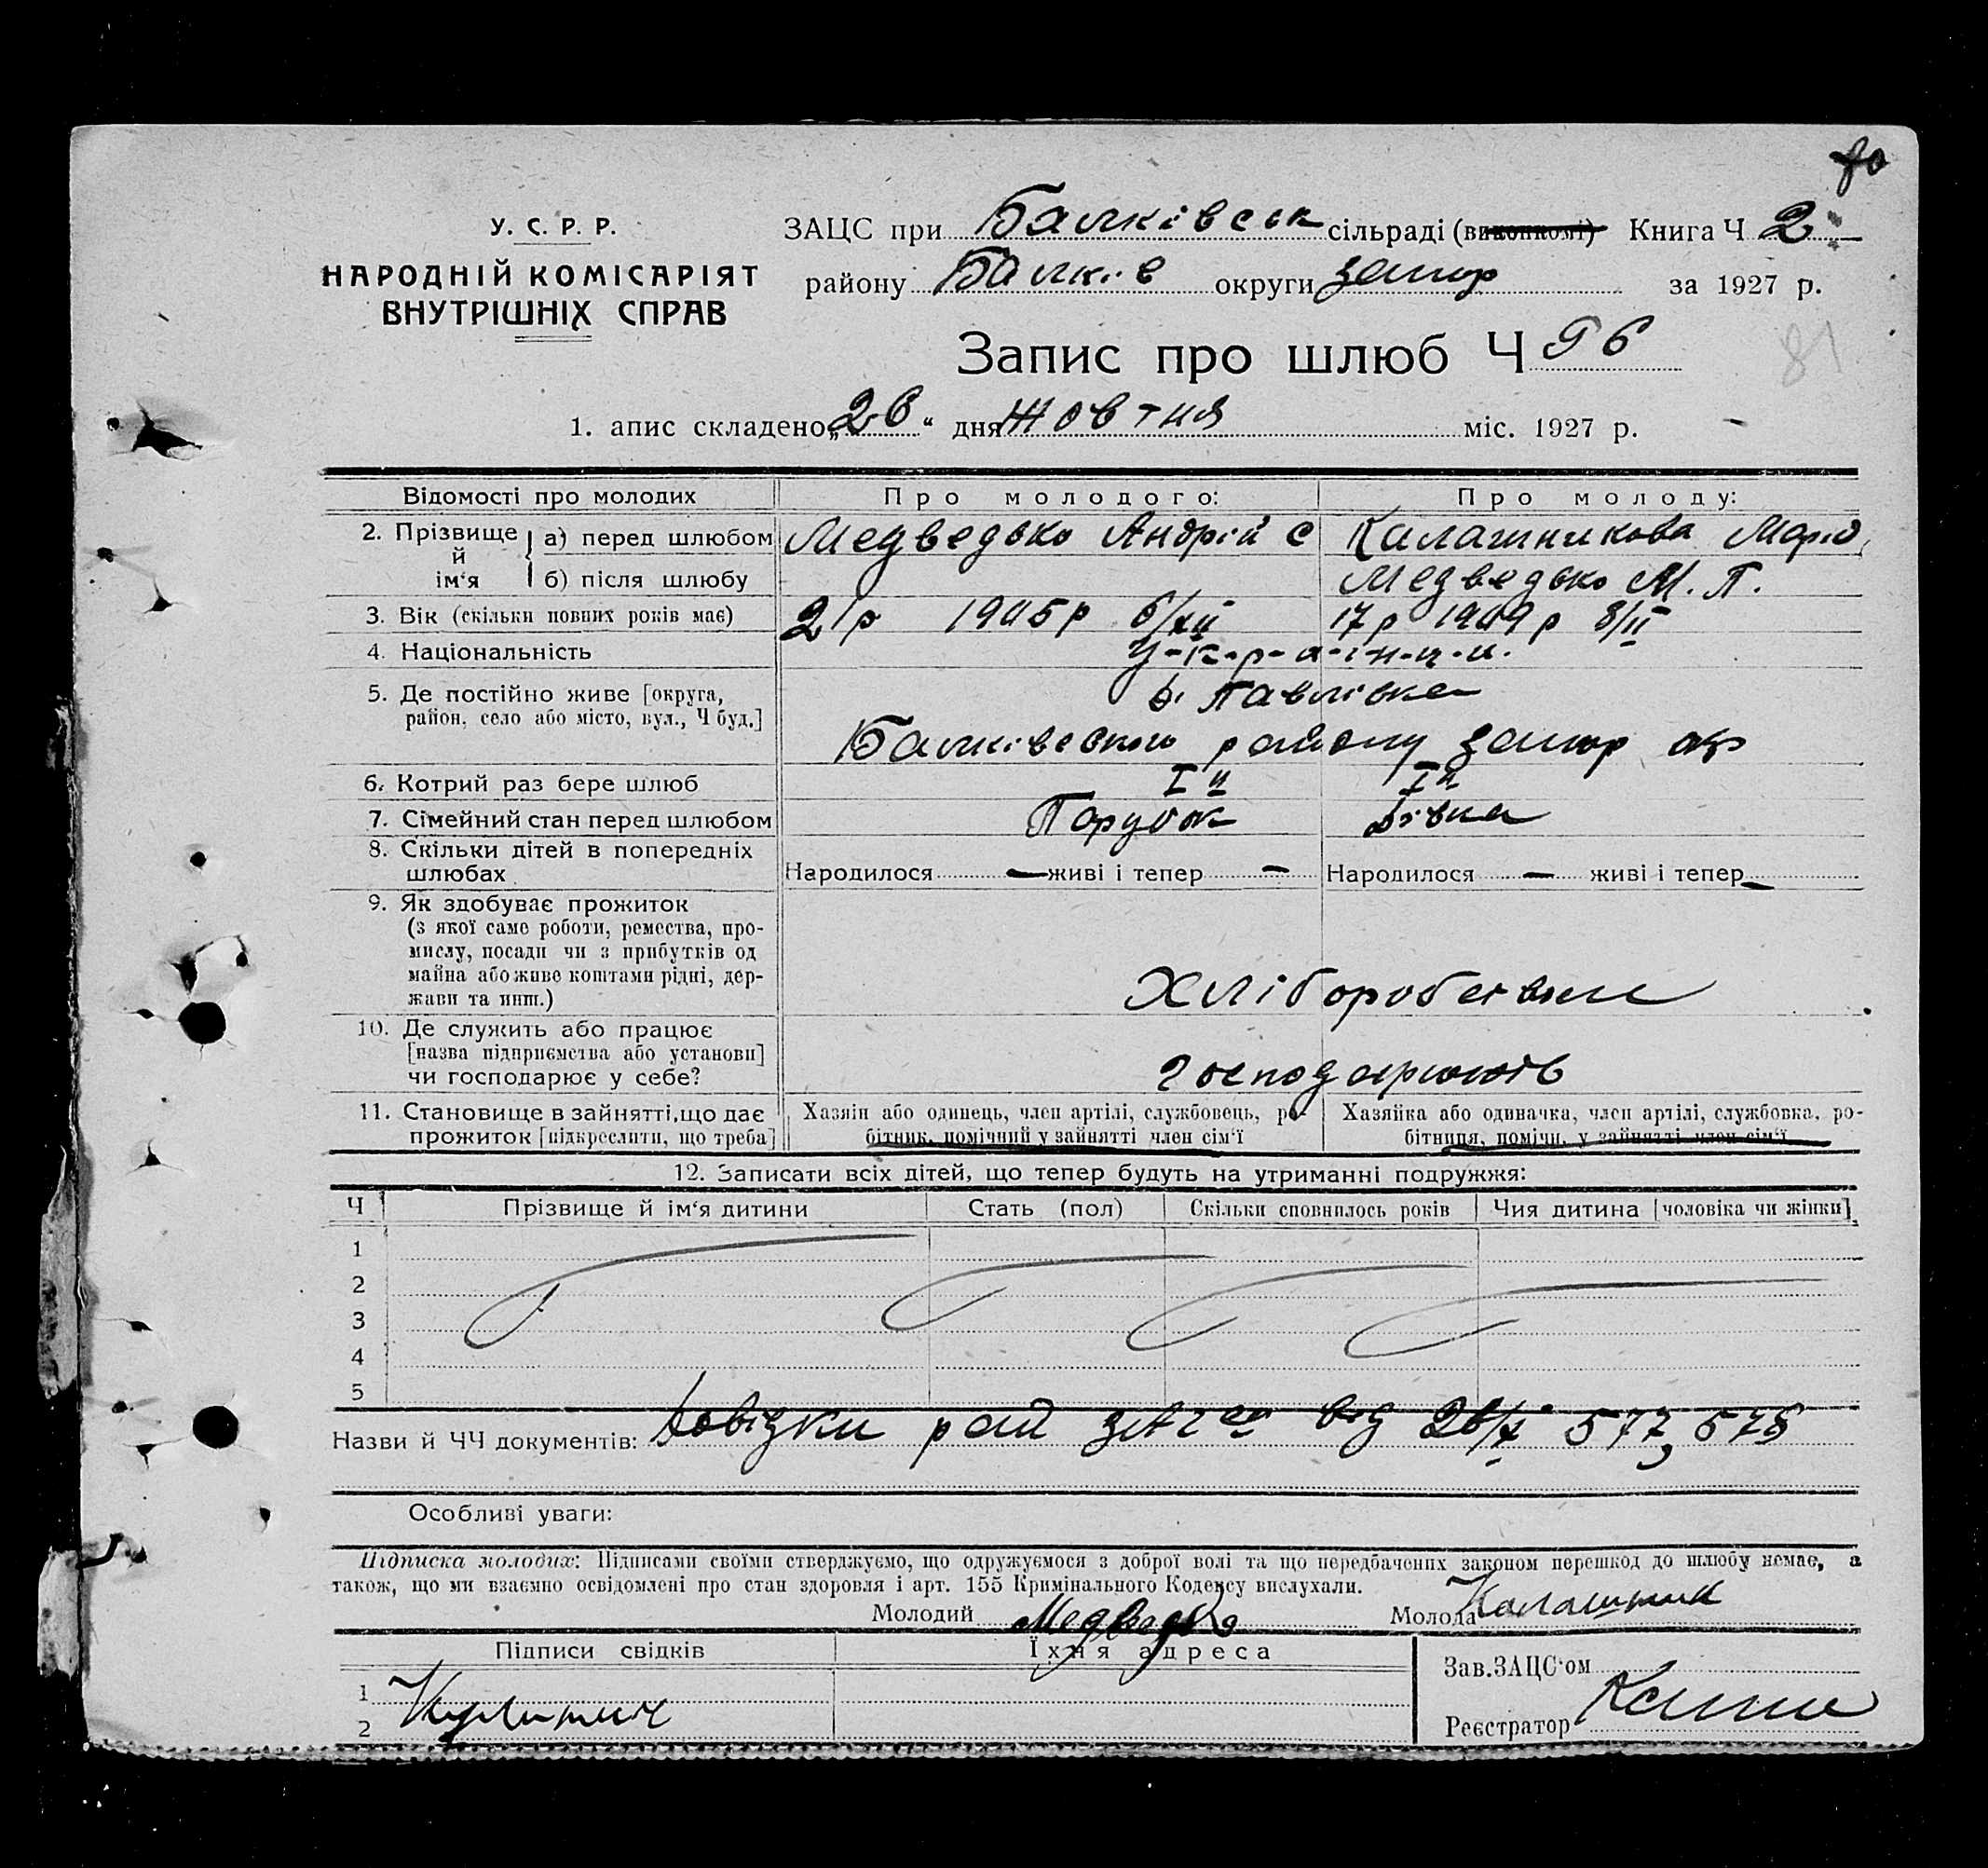 У. С. Р. Р.
НАРОДНІЙ КОМІСАРІЯТ
ВНУТРІШНІХ СПРАВ
ЗАЦС при Балківськ сільраді (виконкомі) Книга Ч 2
району Балків округи запор за 1927 р.
81
Запис про шлюб Ч 96
1. апис складено „26“ дня Жовтня міс. 1927 р.
Відомості про молодих Про молодого: Про молоду:
2. Прізвище й ім‘я а) перед шлюбом Медведько Андрій С Калашникова Марія
б) після шлюбу Медведько М. П.
3. Вік (скільки повних років має) 21р 1905р 6/XII 17р 1909р 8/II
4. Національність У-к-р-а-ї-н-ц-и.
5. Де постійно живе [округа, район, село або місто, вул., Ч буд.] с. Павлівка
Балківського району запор окр
6. Котрий раз бере шлюб І й І й
7. Сімейний стан перед шлюбом Парубок Дівка
8. Скільки дітей в попередніх шлюбах Народилося — живі і тепер — Народилося — живі і тепер —
9. Як здобуває прожиток
(з якої саме роботи, ремества, про-
мислу, посади чи з прибутків од
майна або живе коштами рідні, дер-
жави та инш.) Хліборобством
10. Де служить або працює
[назва підприємства або установи]
чи господарює у себе? господарюють
11. Становище в зайнятті, що дає прожиток [підкреслити, що треба] Хазяін або одинець, член артілі, службовець, ро-
бітник, помічний у зайнятті член сім‘ї
Хазяйка або одиначка, член артілі, службовка, ро-
бітниця, помічн. у зайнятті член сім‘ї
12. Записати всіх дітей, що тепер будуть на утриманні подружжя:
Ч Прізвище й ім‘я дитини Стать (пол) Скільки сповнилось років Чия дитина [чоловіка чи жінки]
1
2
3
4
5
Назви й ЧЧ документів: Довідки рай від 26/X 577, 578
Особливі уваги:
Підписка молодих: Підписами своїми стверджуємо, що одружуємося з доброї волі та що передбачених законом перешкод до шлюбу немає, а
також, що ми взаємно освідомлені про стан здоровля і арт. 155 Кримінального Кодексу вислухали.
Молодий Медведько Молода Калашник
Підписи свідків Їхня адреса
Зав.ЗАЦС‘ом
1
2
Реєстратор